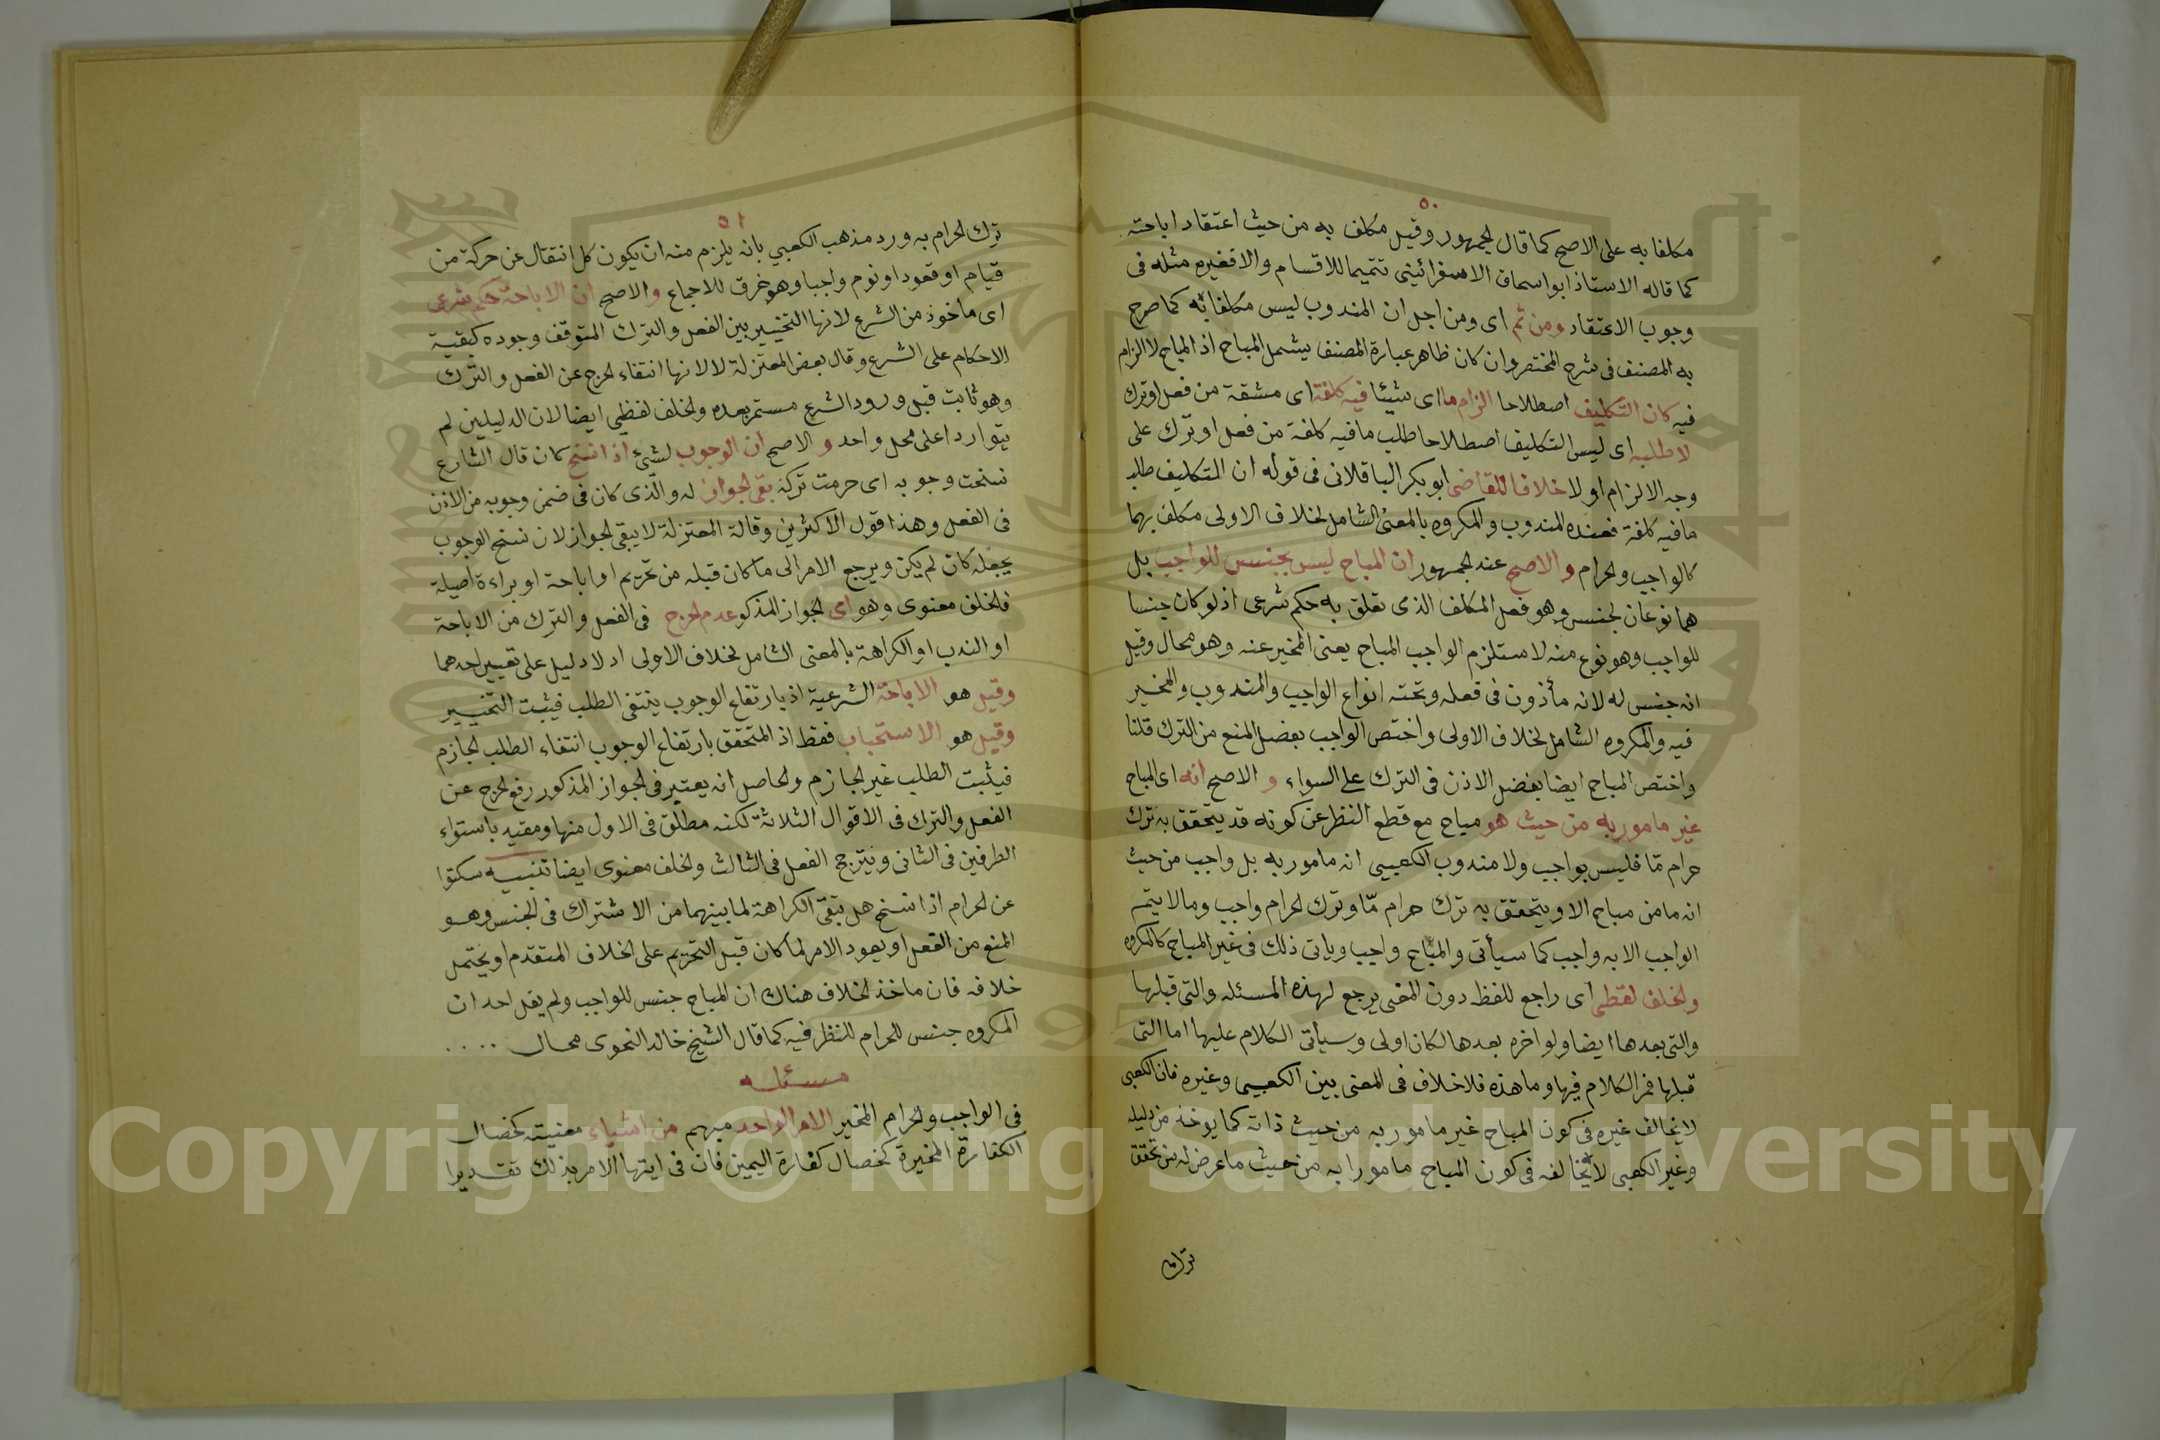 ٥٠
مكلفا به على الاصح كما قال الجمهور وقيل مكلف به من حيث اعتقاد اباحته
كما قاله الاستاذ ابواسحاق الاسفرائيني تتميما للاقسام والا فغيره مثله فى
وجوب الاعتقاد ومن ثم اى ومن اجل ان المندوب ليس مكلفا به كما صرح
به المصنف فى شرح المختصر وان كان ظاهر عبارة المصنف يشمل المباح اذ المباح لا الزام
فيه كان التكليف اصطلاحا الزام ما اى شيئا فيه كلفة اى مشقة من فعل او ترك
لا طلبه اى ليس التكليف اصطلاحا طلب ما فيه كلفة من فعل او ترك على
وجه الالزام او لا خلافا للقاضى ابو بكر الباقلانى فى قوله ان التكليف طلب
ما فيه كلفة فعنده المندوب والمكروه بالمعنى الشامل لخلاف الاولى مكلف بهما
كالواجب والحرام والاصح عند الجمهور ان المباح ليس بجنس للواجب بل
هما نوعان لجنس وهو فعل المكلف الذى تعلق به حكم شرعى اذ لو كان جنسا
للواجب وهو نوع منه لاستلزم الواجب المباح يعنى المخير عنه وهو محال وقيل
انه جنس له لانه مأذون فى فعله وتحته انواع الواجب والمندوب والمخير
فيه والمكروه الشامل لخلاف الاولى واختص الواجب بفصل المنع من الترك قلنا
واختص المباح ايضا بفصل الاذن فى الترك على السواء و الاصح انه اى المباح
غير مامور به من حيث هو مباح مع قطع النظر عن كونه قد يتحقق به ترك
حرام مّا فليس بواجب ولا مندوب الكعبيى انه مامور به بل واجب من حيث
انه ما من مباح الا ويتحقق به ترك حرام مّا وترك الحرام واجب وما لا يتم
الواجب الا به واجب كما سيأتى والمباح واجب وياتى ذلك فى غير المباح كالمكروه
والخلف لفظى اى راجع للفظ دون المعنى يرجع لهذه المسئله والتى قبلها
والتى بعدها ايضا ولو اخره بعدها لكان اولى وسيأتى الكلام عليها اما التى
قبلها فمر الكلام فيها وما هذه فلا خلاف فى المعنى بين الكعبيى وغيره فان الكعبى
لا يخالف غيره فى كون المباح غير مامور به من حيث ذاته كما يوخذ من دليله
وغير الكعبى لا يخالفه فى كون المباح مامورا به من حيث ما عرض له من تحقق
ترك
٥١
ترك الحرام به ورد مذهب الكعبي بانه يلزم منه ان يكون كل انتقال عن حركة من
قيام او قعود او نوم واجبا وهو خرق للاجماع والاصح ان الاباحة حكم شرعى
اى ماخوذ من الشرع لانها التخيير بين الفعل والترك المتوقف وجوده كبقية
الاحكام على الشرع وقال بعض المعتزلة لا لانها انتفاء الحرج عن الفعل والترك
وهو ثابت قبل ورود الشرع مستمر بعده والخلف لفظي ايضا لان الدليلين لم
يتواردا على محل واحد و الاصح ان الوجوب لشيء اذا نسخ كان قال الشارع
نسخت وجوبه اى حرمت تركه بقى الجواز له والّذى كان فى ضمن وجوبه من الاذن
فى الفعل وهذا قول الاكثرين وقالة المعتزلة لا يبقى الجواز لان نسخ الوجوب
يجعله كان لم يكن ويرجع الامر الى ما كان قبله من تحريم او اباحة او براءة اصيلة
فالخلف معنوى وهو اى الجواز المذكو عدم الحرج فى الفعل والترك من الاباحة
او الندب او الكراهة بالمعنى الشامل لخلاف الاولى اذ لا دليل على تعيين احدهما
وقيل هو الاباحة الشرعية اذ بارتفاع الوجوب ينتفى الطلب فيثبت التخيير
وقيل هو الاستحباب فقط اذ المتحقق بارتفاع الوجوب انتفاء الطلب الجازم
فيثبت الطلب غير الجازم والحاصل انه يعتبر فى الجواز المذكور رفع الحرج عن
الفعل والترك فى الاقوال الثلاثة لكنه مطلق فى الاول منها ومقيد باستواء
الطرفين فى الثانى وبترجح الفعل فى الثالث والخلف معنوى ايضا تنبيه سكتوا
عن الحرام اذا نسخ هل تبقى الكراهة لما بينهما من الاشتراك فى الجنس وهو
المنع من الفعل او يعود الامر لما كان قبل التحريم على الخلاف المتقدم او يحتمل
خلافه فان ماخذ الخلاف هناك ان المباح جنس للواجب ولم يقل احد ان
المكروه جنس للحرام للنظر فيه كما قال الشيخ خالد النحوى محال ....
مسئله
فى الواجب والحرام المخير الامر الواحد مبهم من اشياء معنيته كخصال
الكفارة المخيرة كخصال كفارة اليمين فان فى ايتها الامر بذلك تقديرا
Copyright © King Saud University